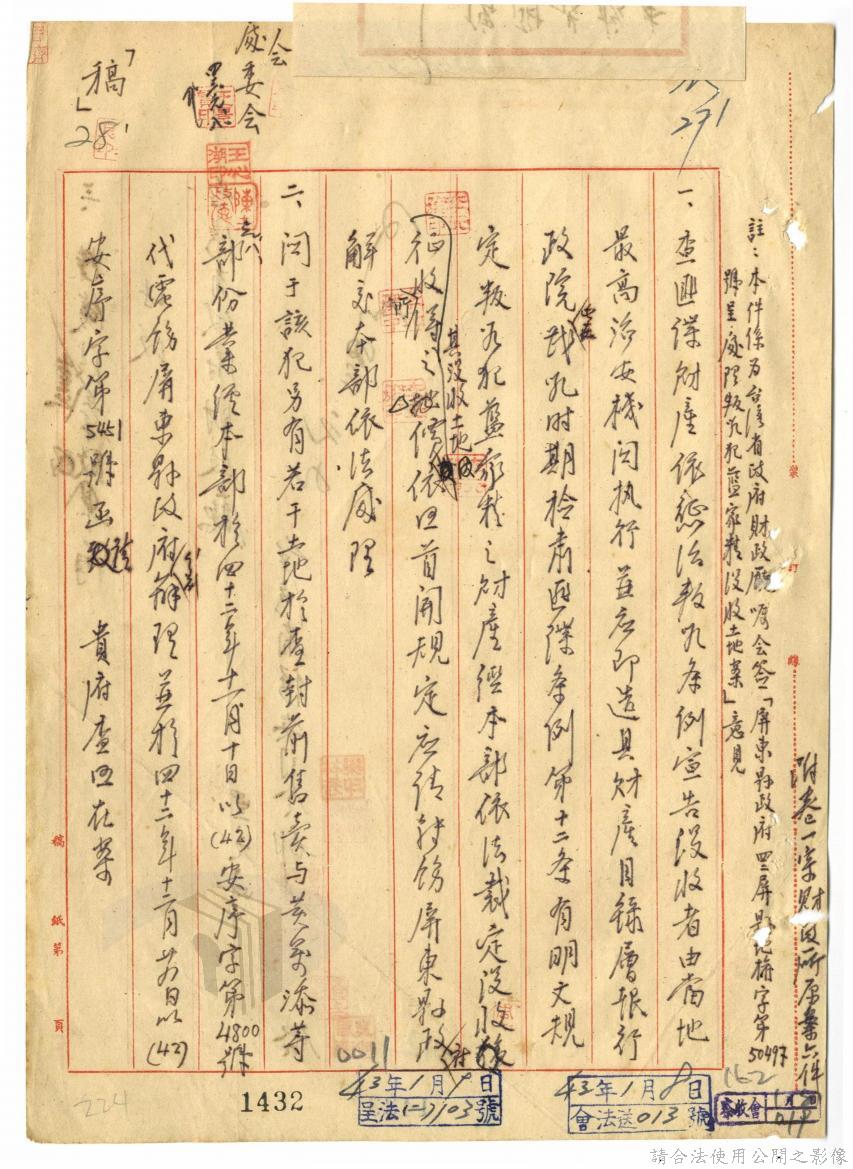 附卷一宗財政所原案六件
註：本件係為台灣省政府財政廳囑会簽「屏東縣政府四二屏縣地権字第50497
號呈處理叛乱犯藍家精没收土地案」意見
一、查匪諜財產依懲治叛乱条例宣告没收者由當地
最高治安機関执行並应即造具財產目録層報行
政院戡乱时期检肅匪諜条例第十二条有明文規
定叛乱犯藍家精之財產經本部依法裁定没收
其没收土地
征收得之地價依照首開規定应請轉飭屏東縣政府
解交本部依法處理
二、関于該犯另有若干土地於查封前售賣与黃萬添等
部份業經本部於四十二年十一月十日以(42)安序字第4800號
代電飭屏東縣政府辦理並於四十二年十二月廿日以(42)
安序字第5451號函 貴府查照在案
三、
會
處委会
「稿」
28
291
162
裝
訂
線
稿紙第 頁
0011
43年1月9日
呈法(一)103號
43年1月8日
會法送013號
1432
224
請合法使用公開之影像